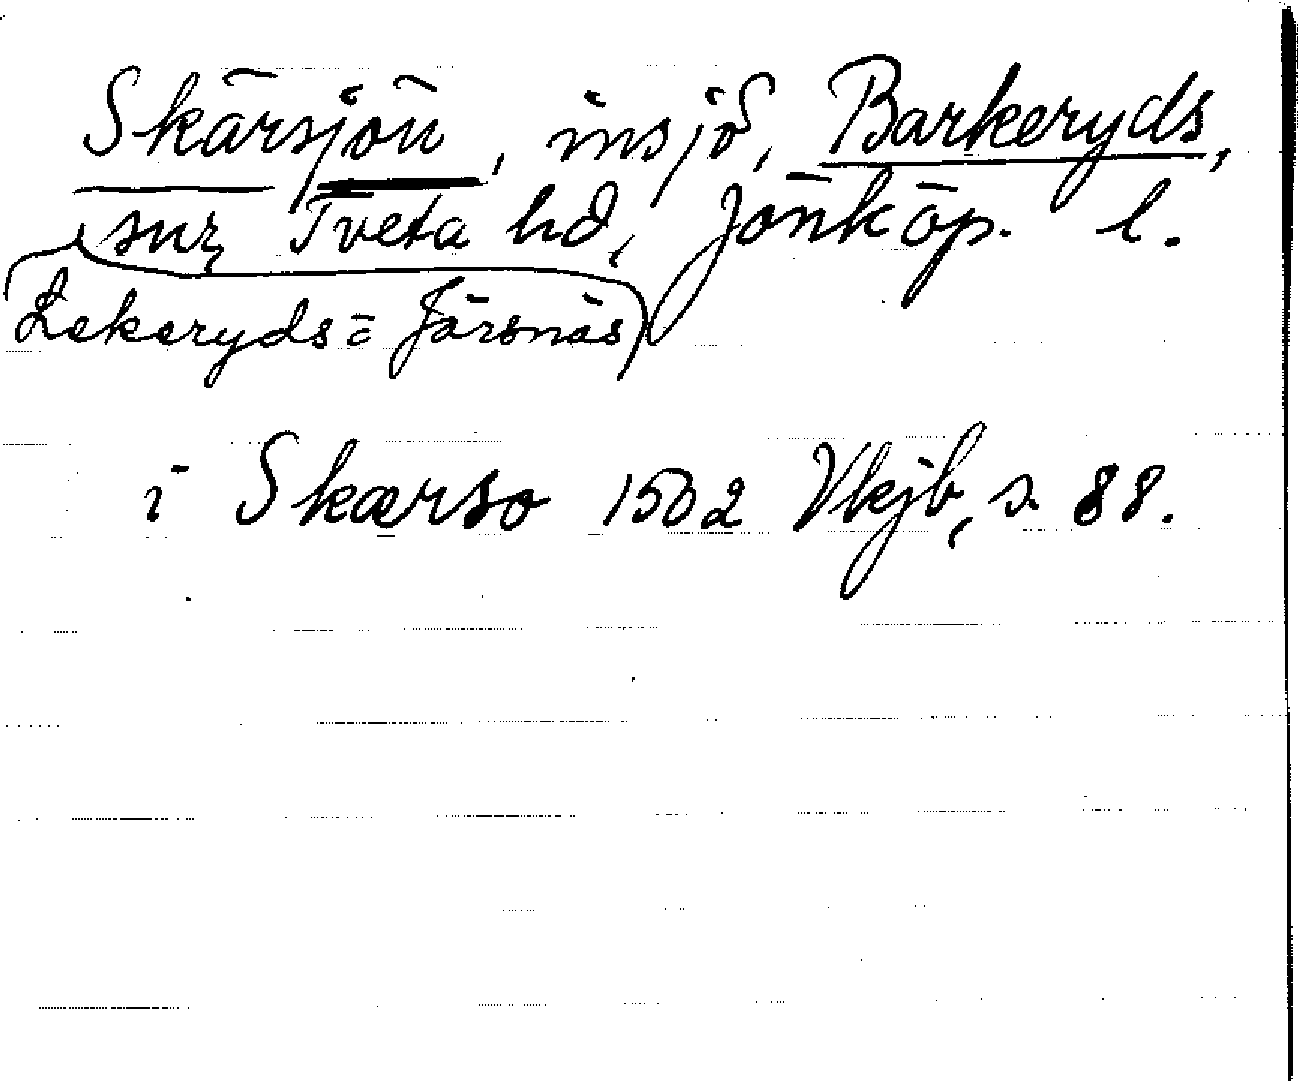 Skärsjön, insjö, Barkeryds,
snr, Tveta hd, Jönköp. l.
Lekeryds= Järsnäs)
i Skærso 1502 Vkjb, s. 88.